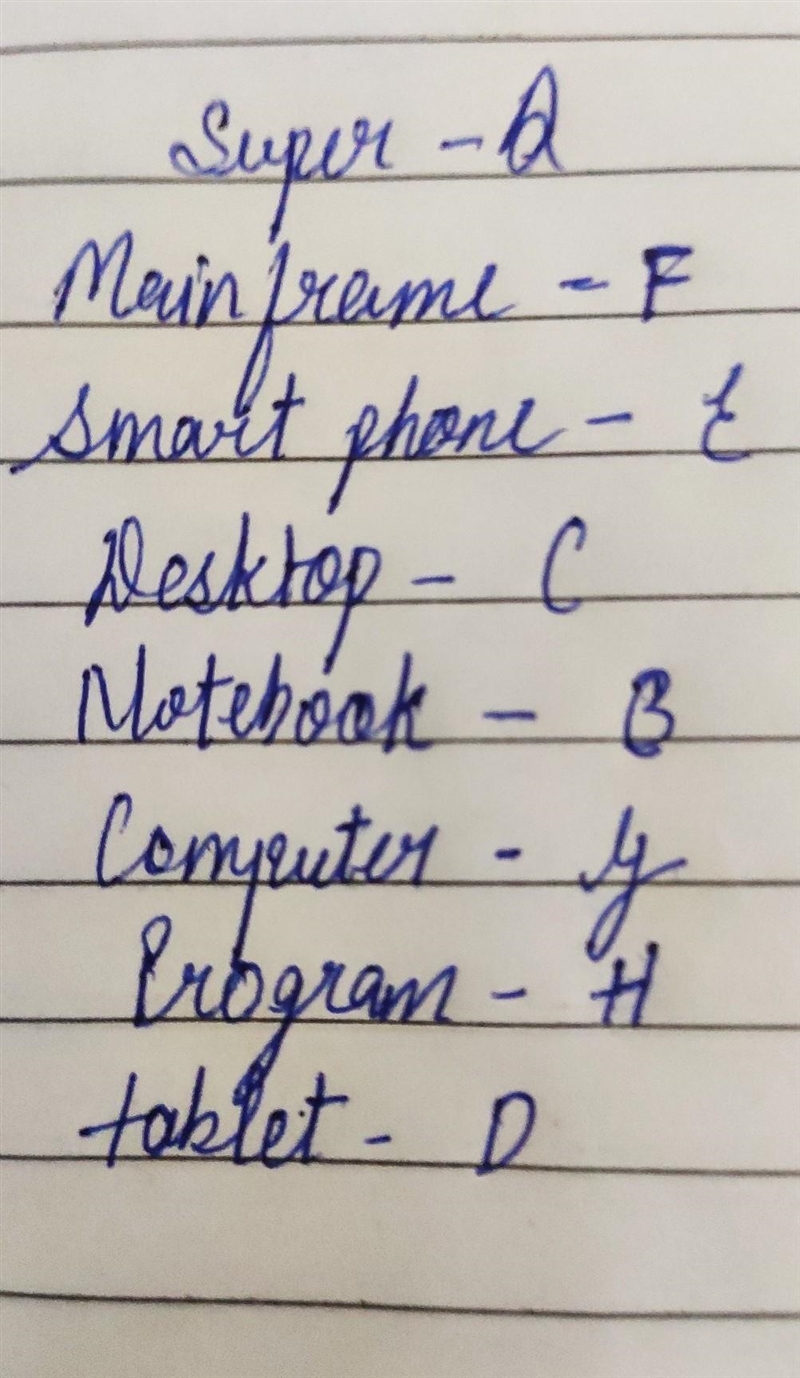 Super - A
Mainframe - F
Smart phone - E
Desktop - C
Notebook - B
Computer - G
Program - H
tablet - D